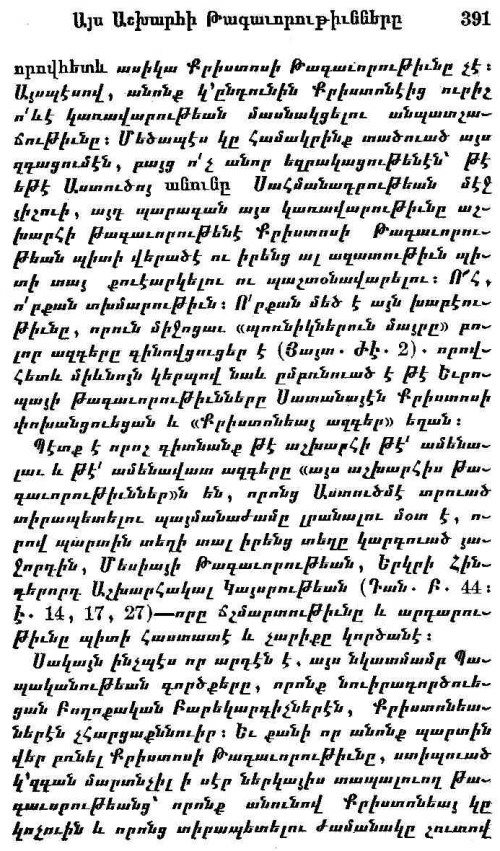 Այս Աշխարհի Թագաւորութիւնները 391
որովհետև ասիկա Քրիստոսի Թագաւորութիւնը չէ։
Այսպէսով, անոնք կ՚ընդունին Քրիստոնէից ուրիշ
ո՛ևէ կառավարութեան մասնակցելու անպատշա-
ճութիւնը։ Մեծապէս կը համակրինք տածուած այս
զգացումէն, բայց ո՛չ անոր եզրակացութենէն՝ թէ
եթէ Աստուծոյ անունը Սահմանադրութեան մէջ
յիշուի, այդ պարագան այս կառավարութիւնը աշ-
խարհի թագաւորութենէ Քրիստոսի Թագաւորու-
թեան պիտի վերածէ ու իրենց ալ ազատութիւն պի-
տի տայ քուէարկելու ու պաշտօնավարելու։ Ո՜հ,
ո՛րքան տխմարութիւն։ Ո՛րքան մեծ է այն խաբէու-
թիւնը, որուն միջոցաւ «պոռնիկներուն մայրը» բո-
լոր ազգերը գինովցուցեր է (Յայտ. ԺԷ. 2). որով-
հետև միևնոյն կերպով նաև ըմբռնուած է թէ Եւրո-
պայի թագաւորութիւնները Սատանայէն Քրիստոսի
փոխանցուեցան և «Քրիստոնեայ ազգեր» եղան։
Պէտք է որոշ գիտնանք թէ աշխարհի թէ՛ ամենա-
լաւ և թէ՛ ամենավատ ազգերը «այս աշխարհիս Թա-
գաւորութիւններ»ն են, որոնց Աստուծմէ տրուած
տիրապետելու պայմանաժամը լրանալու մօտ է, ո-
րով պարտին տեղի տալ իրենց տեղը կարգուած յա-
ջորդին, Մեսիայի Թագաւորութեան, Երկրի Հին-
գերորդ Աշխարհակալ Կայսրութեան (Դան. Բ. 44։
Է. 14, 17, 27)—որը ճշմարտութիւնը և արդարու-
թիւնը պիտի հաստատէ և չարիքը կործանէ։
Սակայն ինչպէս որ արդէն է. այս նկատմամբ Պա-
պականութեան գործքերը, որոնք նուիրագործուե-
ցան Բողոքական Բարեկարգիչներէն, Քրիստոնեա-
ներէն չհարցաքննուիր։ Եւ քանի որ անոնք պարտին
վեր բռնել Քրիստոսի Թագաւորութիւնը, ստիպուած
կ՚զգան մարտնչիլ ի սէր ներկայիս տապալուող Թա-
գաւորութեանց՝ որոնք անունով Քրիստոնեայ կը
կոչուին և որոնց տիրապետելու ժամանակը շուտով